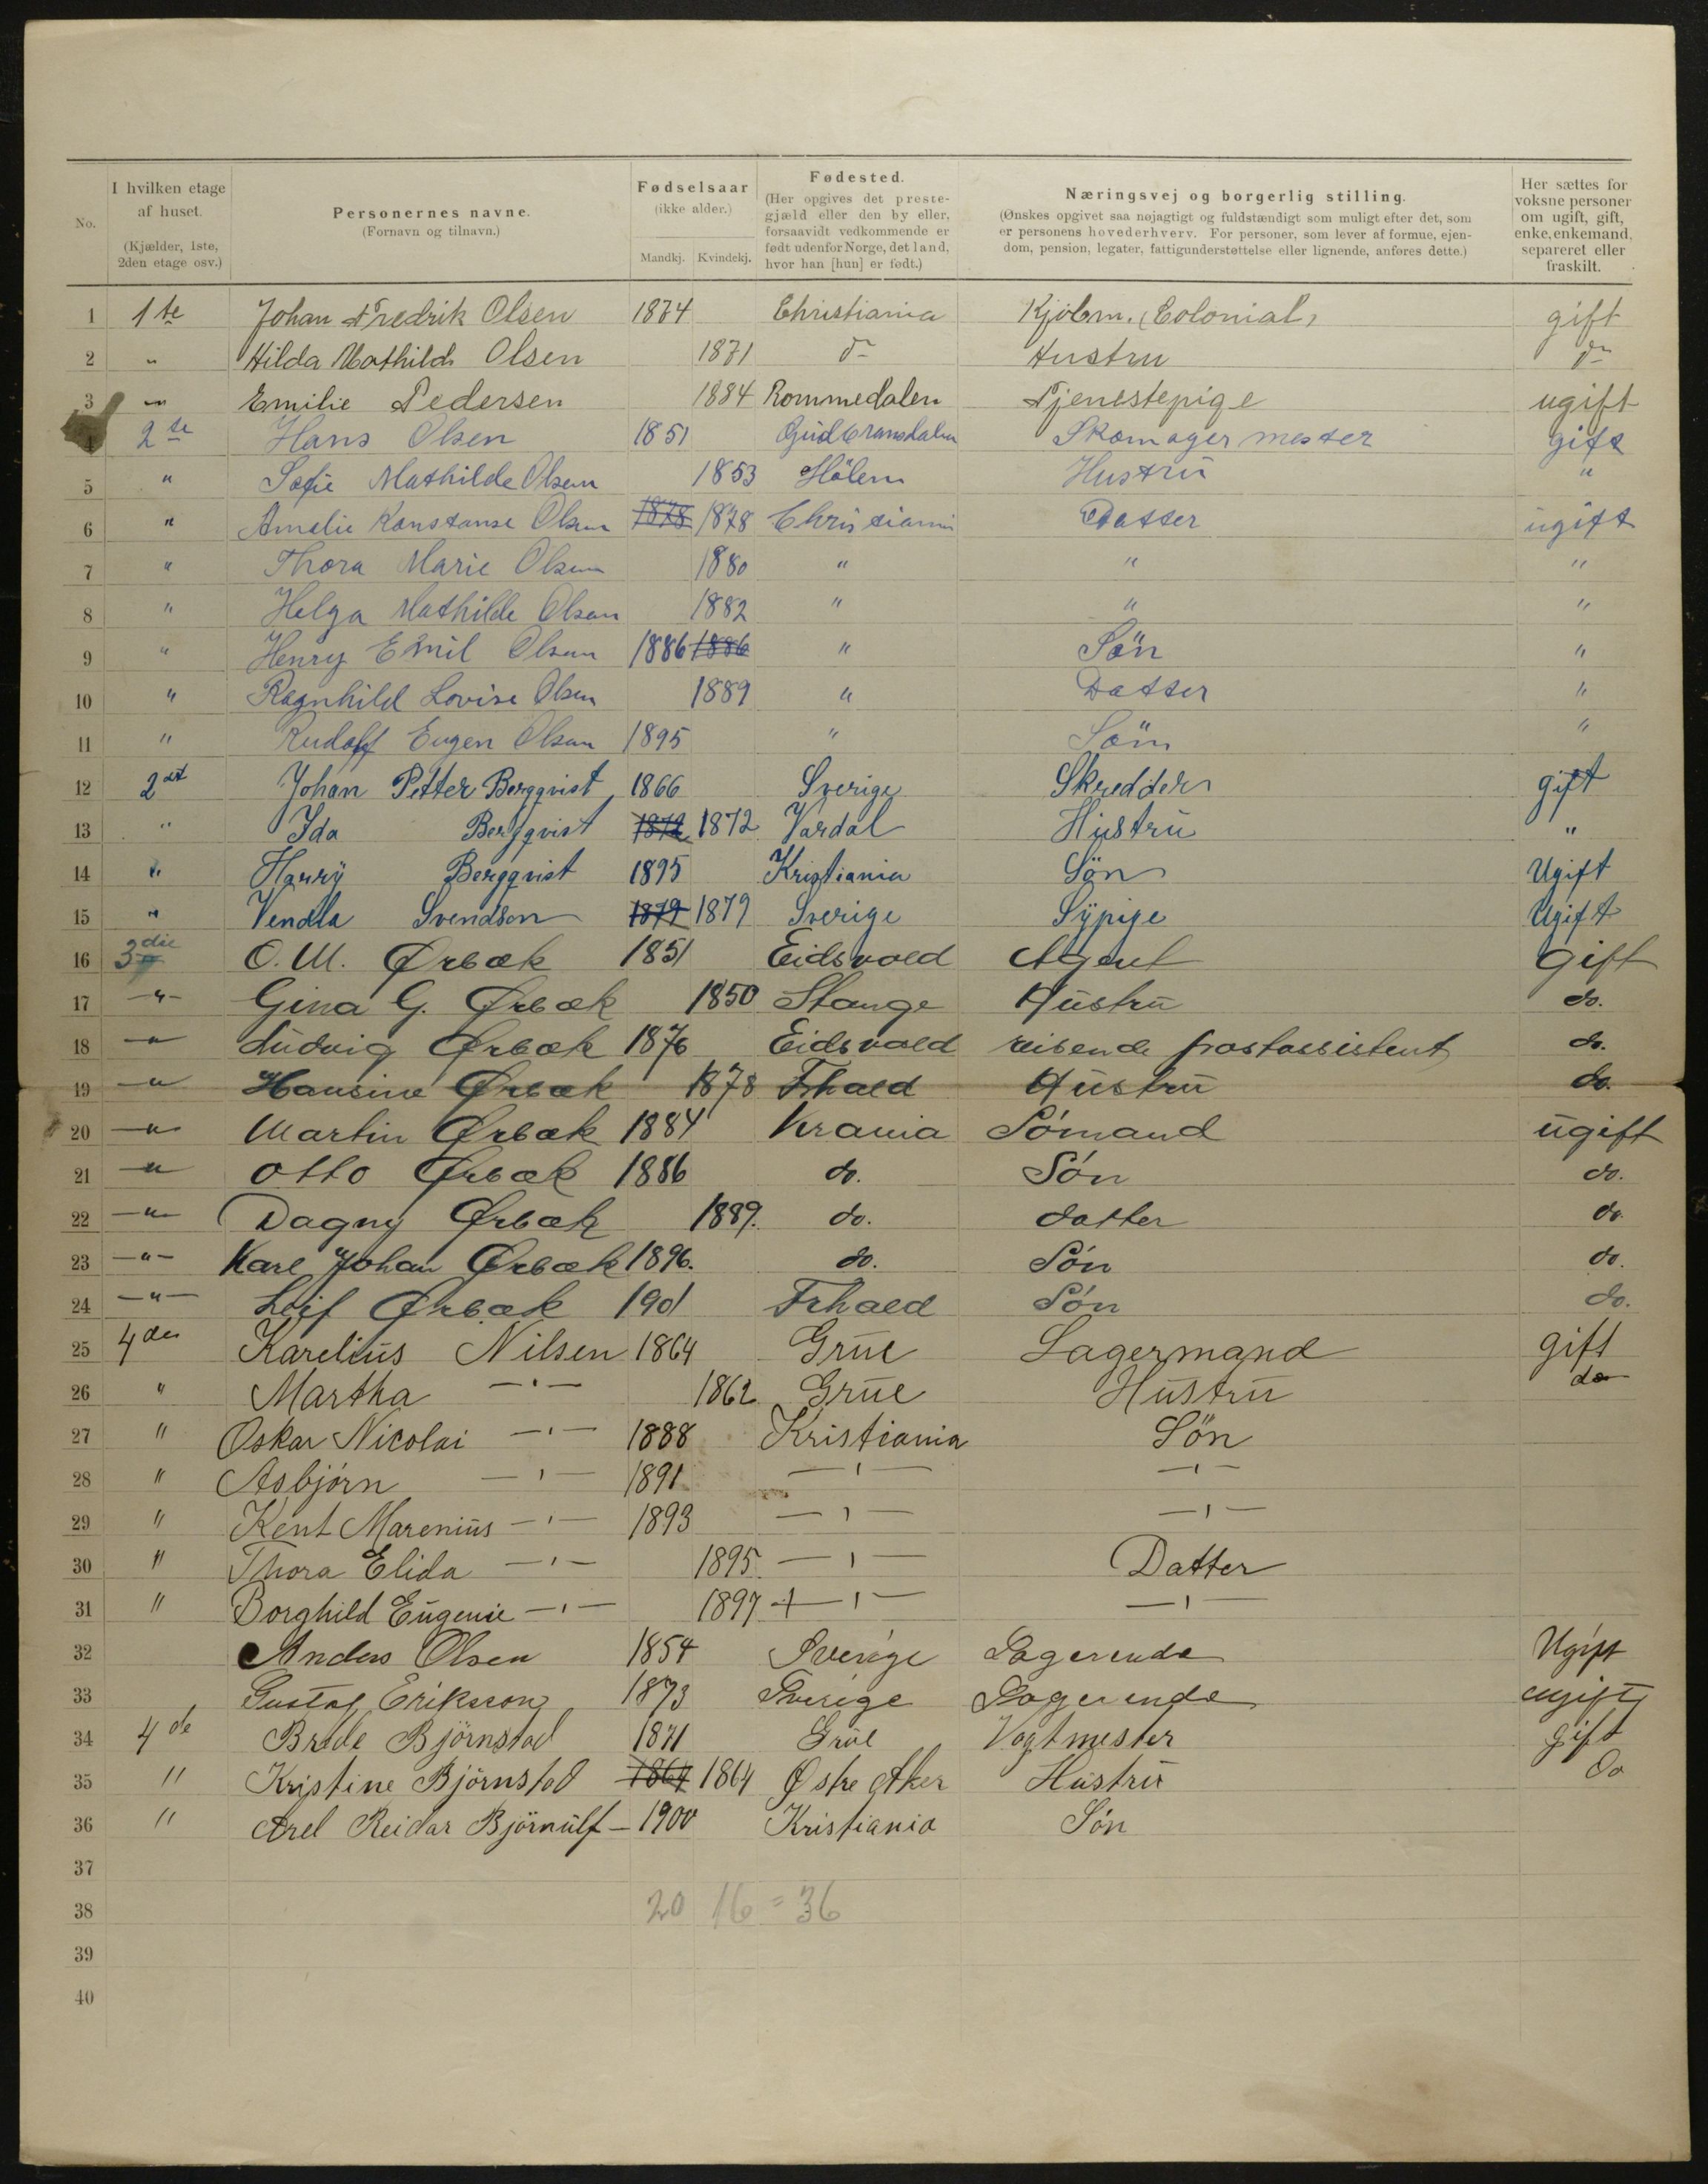 No.
I hvilken etage af huset. (Kjælder, 1ste, 2den etage osv.)
Personernes navne. (Fornavn og tilnavn.)
Fødselsaar (ikke alder.) Mandkj. Kvindekj.
Fødested. (Her opgives det prestegjæld eller den by eller, forsaavidt vedkommende er født udenfor Norge, det land, hvor han [hun] er født.)
Næringsvej og borgerlig stilling. (Ønskes opgivet saa nøjagtigt og fuldstændigt som muligt efter det, som er personens hovederhverv. For personer, som lever af formue, ejendom, pension, legater, fattigunderstøttelse eller lignende, anføres dette.)
Her sættes for voksne personer om ugift, gift, enke, enkemand, separeret eller fraskilt.
1 1ste Johan Fredrik Olsen 1874 Christiania Kjøbm. (Colonial) gift
2 " Hilda Mathilde Olsen 1871 do Hustru do
3 " Emilie Pedersen 1884 Rommedalen Tjenestepige ugift
4 2te Hans Olsen 1851 Gudbransdalen Skomagermester gift
5 " Sofie Mathilde Olsen 1853 Hölen Hustru "
6 " Amalie Konstanse Olsen 1878 1878 Christiania Datter ugift
7 " Thora Marie Olsen 1880 " " "
8 " Helga Mathilde Olsen 1882 " " "
9 " Henry Emil Olsen 1886 1886 " Sön "
10 " Ragnhild Lovise Olsen 1889 " Datter "
11 " Rudolf Eugen Olsen 1895 " Sön "
12 2det Johan Petter Bergqvist 1866 Sverige Skredder gift
13 " Ida Bergqvist 1872 1872 Vardal Hustru "
14 " Harry Bergqvist 1895 Kristiania Sön Ugift
15 " Vendla Svendson 1879 1879 Sverige Sypige Ugift
16 3die O. M. Ørbæk 1851 Eidsvold Agent Gift
17 -"- Gina G. Ørbæk 1850 Stange Hustru do.
18 -"- Ludvig Ørbæk 1876 Eidsvold reisende postassistent do.
19 -"- Hansine Ørbæk 1878 Frhald Hustru do.
20 -"- Martin Ørbæk 1884 Krania Sómand ugift
21 -"- Otto Ørbæk 1886 do. Són do.
22 -"- Dagny Ørbæk 1889. do. datter do.
23 -"- Karl Johan Ørbæk 1896. do. Són do.
24 -"- Leif Ørbæk 1901 Frhald Són do.
25 4de Karelius Nilsen 1864 Grue Lagermand gift
26 " Martha -"- 1862 Grue Hustru do
27 " Oskar Nicolai -"- 1888 Kristiania Sön
28 " Asbjörn -"- 1891 -"- -"-
29 " Kent Marenius -"- 1893 -"- -"-
30 " Thora Elida -"- 1895. -"- Datter
31 " Borghild Eugenie -"- 1897 -"- -"-
32 Anders Olsen 1854 Sverige Logerende Ugift
33 Gustaf Eriksson 1873 Sverige Logerende ugift
34 4de Brede Björnstad 1871 Grue Vogtmester gift
35 " Kristine Björnstad 1864 1864 Østre Aker Hustru Do
36 " Arel Reidar Björnulf - 1900 Kristiania Són
37
38 20 16 = 36
39
40